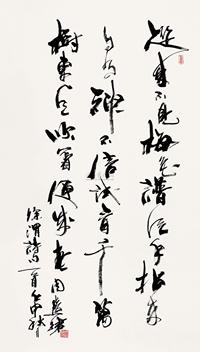 从来不见梅花谱信手拈来
自有神不信试看千万
树东风吹著便成春
徐渭诗一首